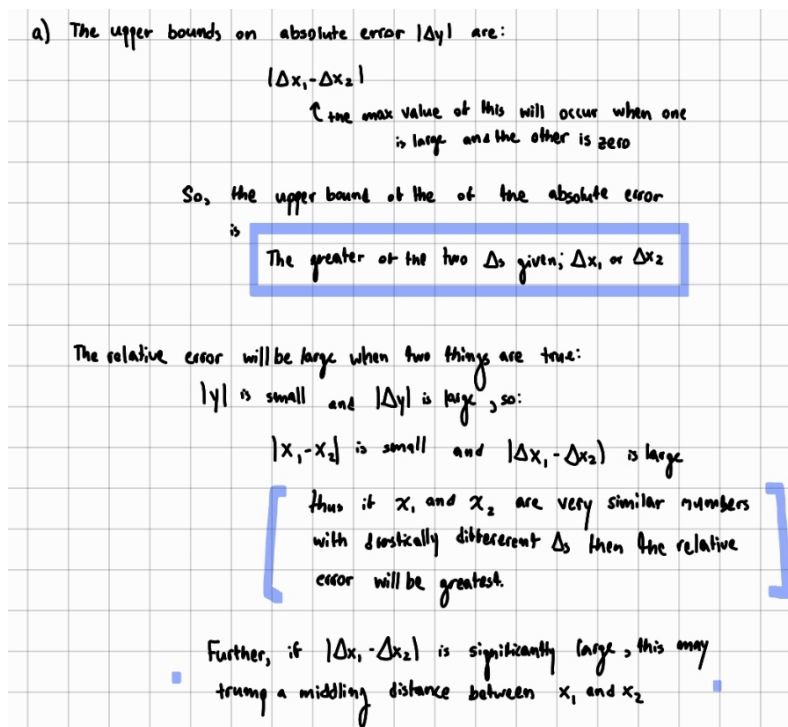 a) The upper bounds on absolute error |Δy| are:
|Δx₁-Δx₂|
↑ the max value of this will occur when one
is large and the other is zero
So, the upper bound of the of the absolute error
is
The greater of the two Δs given; Δx₁ or Δx₂
The relative error will be large when two things are true:
|y| is small and |Δy| is large, so:
|x₁-x₂| is small and |Δx₁-Δx₂) is large
thus if x₁ and x₂ are very similar numbers
with drastically differerent Δs then the relative
error will be greatest.
Further, if |Δx₁-Δx₂| is significantly large, this may
trump a middling distance between x₁ and x₂